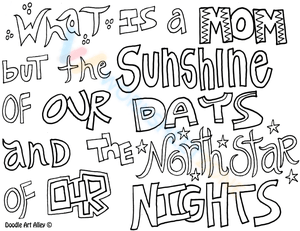 WHAT IS A MOM
but the Sunshine
OF OUR DAYS
and THE NORTH STAR
OF OUR NIGHTS
Doodle Art Alley ©